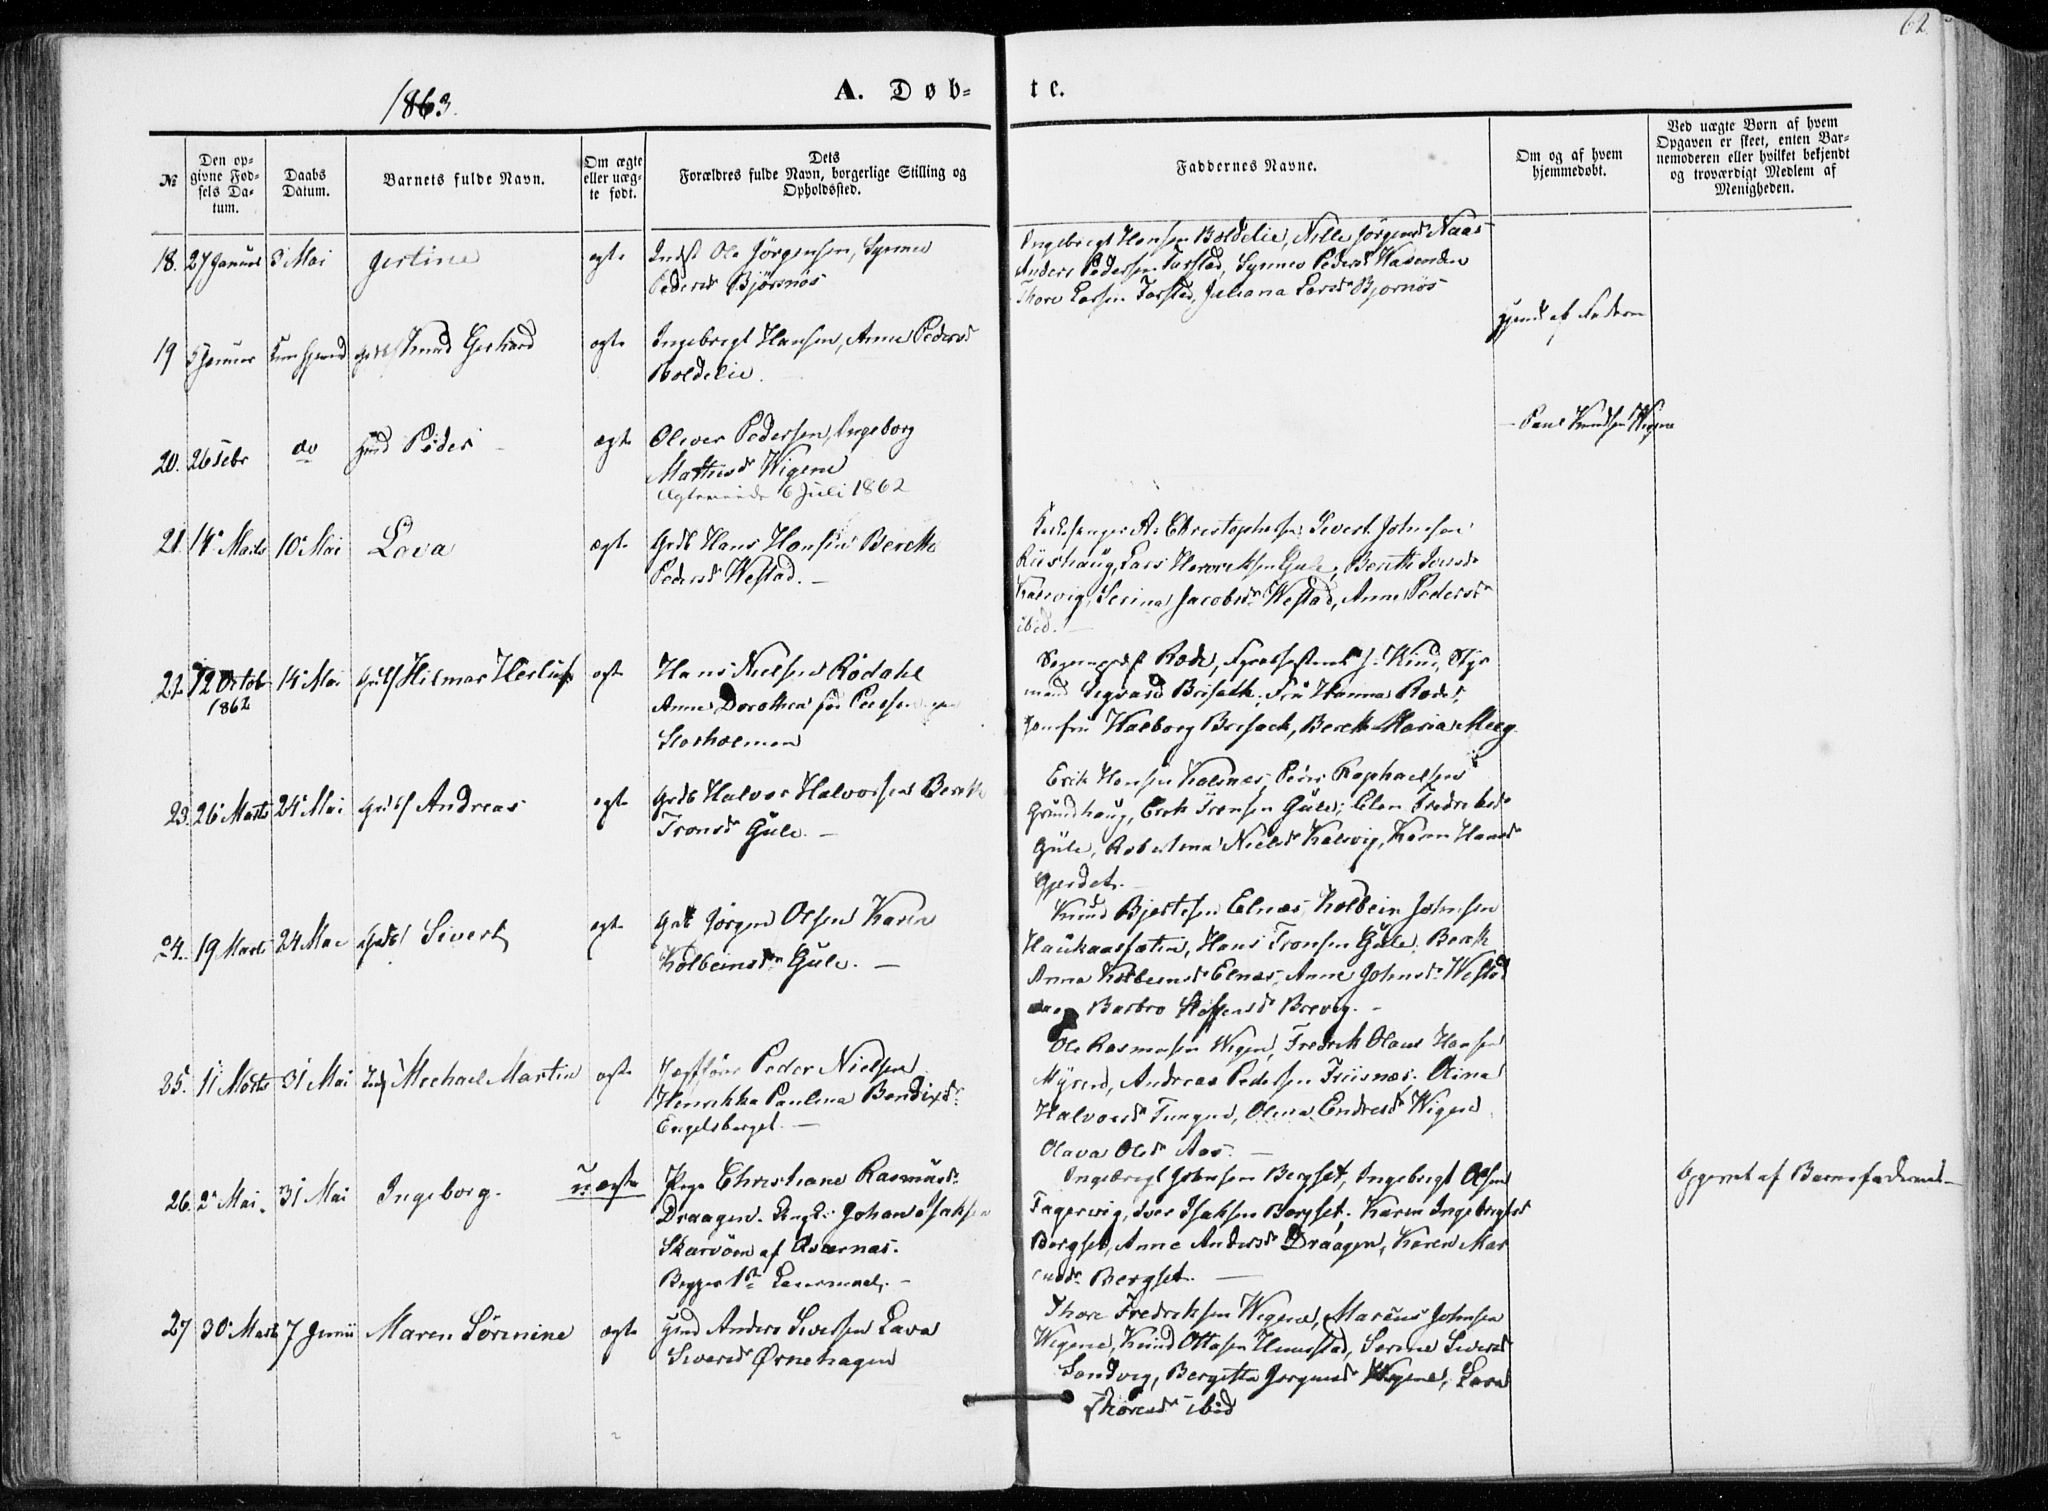 62
1863.
A. Døb-
te.
№
Den op-
givne Fød-
sels Da-
tum.
Daabs
Datum.
Barnets fulde Navn.
Om ægte
eller uæg-
te født.
Dets
Forældres fulde Navn, borgerlige Stilling og
Opholdssted.
Faddernes Navne.
Om og af hvem
hjemmedøbt.
Ved uægte Børn af hvem
Opgaven er skeet, enten Bar-
nemoderen eller hvilket bekjendt
og troværdigt Medlem af
Menigheden.
18. 27 Januar 3 Mai Gertine ægte Indst Ole Jörgensen, Synnev
Pedersd Björsnös
Ingebrigt Hansen Boldelie, Nille Jörgensd Naas
Anders Pedersen Farstad, Synnev Pedersd
Thore Larsen Farstad, Juliana Larsd Bjornös
19 5 Januar Knud Gerhard ægte Ingebrigt Hansen, Anne Pedersd
Boldelie.
af Faderen
20. 26 Febr do Peder ægte Oliver Pedersen, Ingeborg
Mathisd Wigene
6 Juli 1862
Paul Knudsen Wigene
21. 14 Marts 10 Mai Lava ægte Grdb Hans Hansen Berethe
Pedersd Westad.
Kirkesanger A. Christophersen, Sivert Johnsen
Riishaug, Lars Henriksen Gule, Berith Iversd
Kalsvig, Serina Jacobsd Westad, Anne Pedersd
ibid.
22. 12 Octob 14 Mai Hilmar Herluf ægte Hans Nielsen Rödahl
1862
Anne Dorothea
Storholmen
Sogneprest Rode, J. Wind, Styr
mand Sigvard Brisach, Fru Hanna Rode,
Jomfru Valborg Brisach, Bereth Maria Meeg
23. 26 Marts 24 Mai Andreas ægte Grdb Halvor Halvorsen Bereth
Tronsd Gule.
Erik Hansen Kalsnes, Peder Raphaelsen
Grundhaug, Erik Tronsen Gule, Elen Fredriksd
Gule, Robertina Nielsd Kalsvig, Karen Hansd
Gjerdet.
24. 19 Marts 24 Mai Sivert ægte Grdb Jörgen Olsen Karen
Kolbeinsd Gule.
Knud Elnæs, Kolbein Johnsen
Haukaassæter, Hans Tronsen Gule, Bereth
Anna Kolbeinsd Elnæs, Anne Johnsd Westad
Barbro Steffensd Brevig.
25. 11 Marts 31 Mai Mechael Martin ægte Peder Nielsen
Henrikka Paulina Bendixd
Engelsberget.
Ole Rasmusen Wigen, Fredrik Olaus Hansen
Myren, Andreas Pedersen Friisnæs, Olina
Halvorsd Tungen, Olena Endresd Wigen
Olava Olsd Aas.
26. 2 Mai 31 Mai Ingeborg. uægte Pige Christiane Rasmusd
Draagen. Ungk. Johan Isaksen
Skarvöen af Averøes.
Begges 1ste Leiermaal.
Ingebrigt Johnsen Bergset, Ingebrigt Olsen
Fagervig, Iver Isaksen Bergset, Karen Ingebrigtsd
Bergset, Anne Andersd Draagen, Karen Mar
Bergset.
Opgivet af Barnefaderen
27 30 Marts 7 Junii Maren Sörinine ægte Anders Sivertsen Lava
Siversd Ørnehagen
Thore Fredriksen Wigene, Marcus Johnsen
Wigene, Knud Ottosen Hunstad, Serine Siversd
Sandvig, Bergitta Jorgensd Wigene, Lava
Thoresd ibid